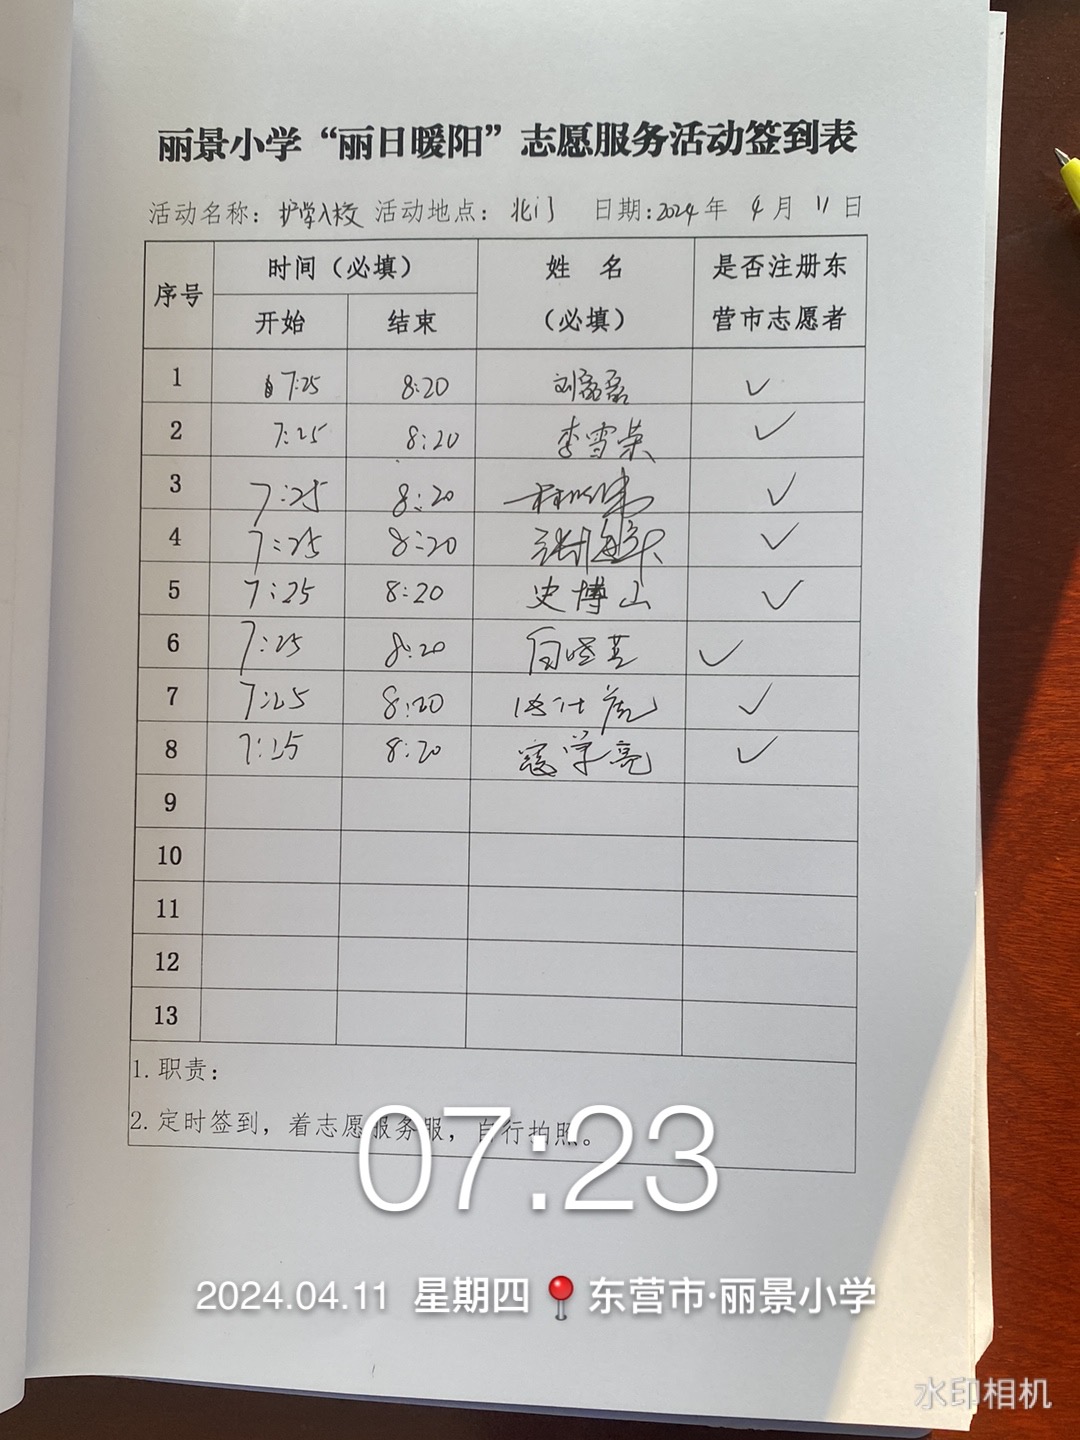 丽景小学“丽日暖阳”志愿服务活动签到表
活动名称：护学入校 活动地点：北门 日期：2024年 4月 11日
序号 时间（必填） 姓 名（必填） 是否注册东营市志愿者
开始 结束
1 7:25 8:20 刘磊磊 ✓
2 7:25 8:20 李雪荣 ✓
3 7:25 8:20 ✓
4 7:25 8:20 ✓
5 7:25 8:20 史博山 ✓
6 7:25 8:20 ✓
7 7:25 8:20 ✓
8 7:25 8:20 寇学亮 ✓
9
10
11
12
13
1.职责：
2.定时签到，着志愿服务服，自行拍照。
07:23
2024.04.11 星期四 东营市·丽景小学
水印相机